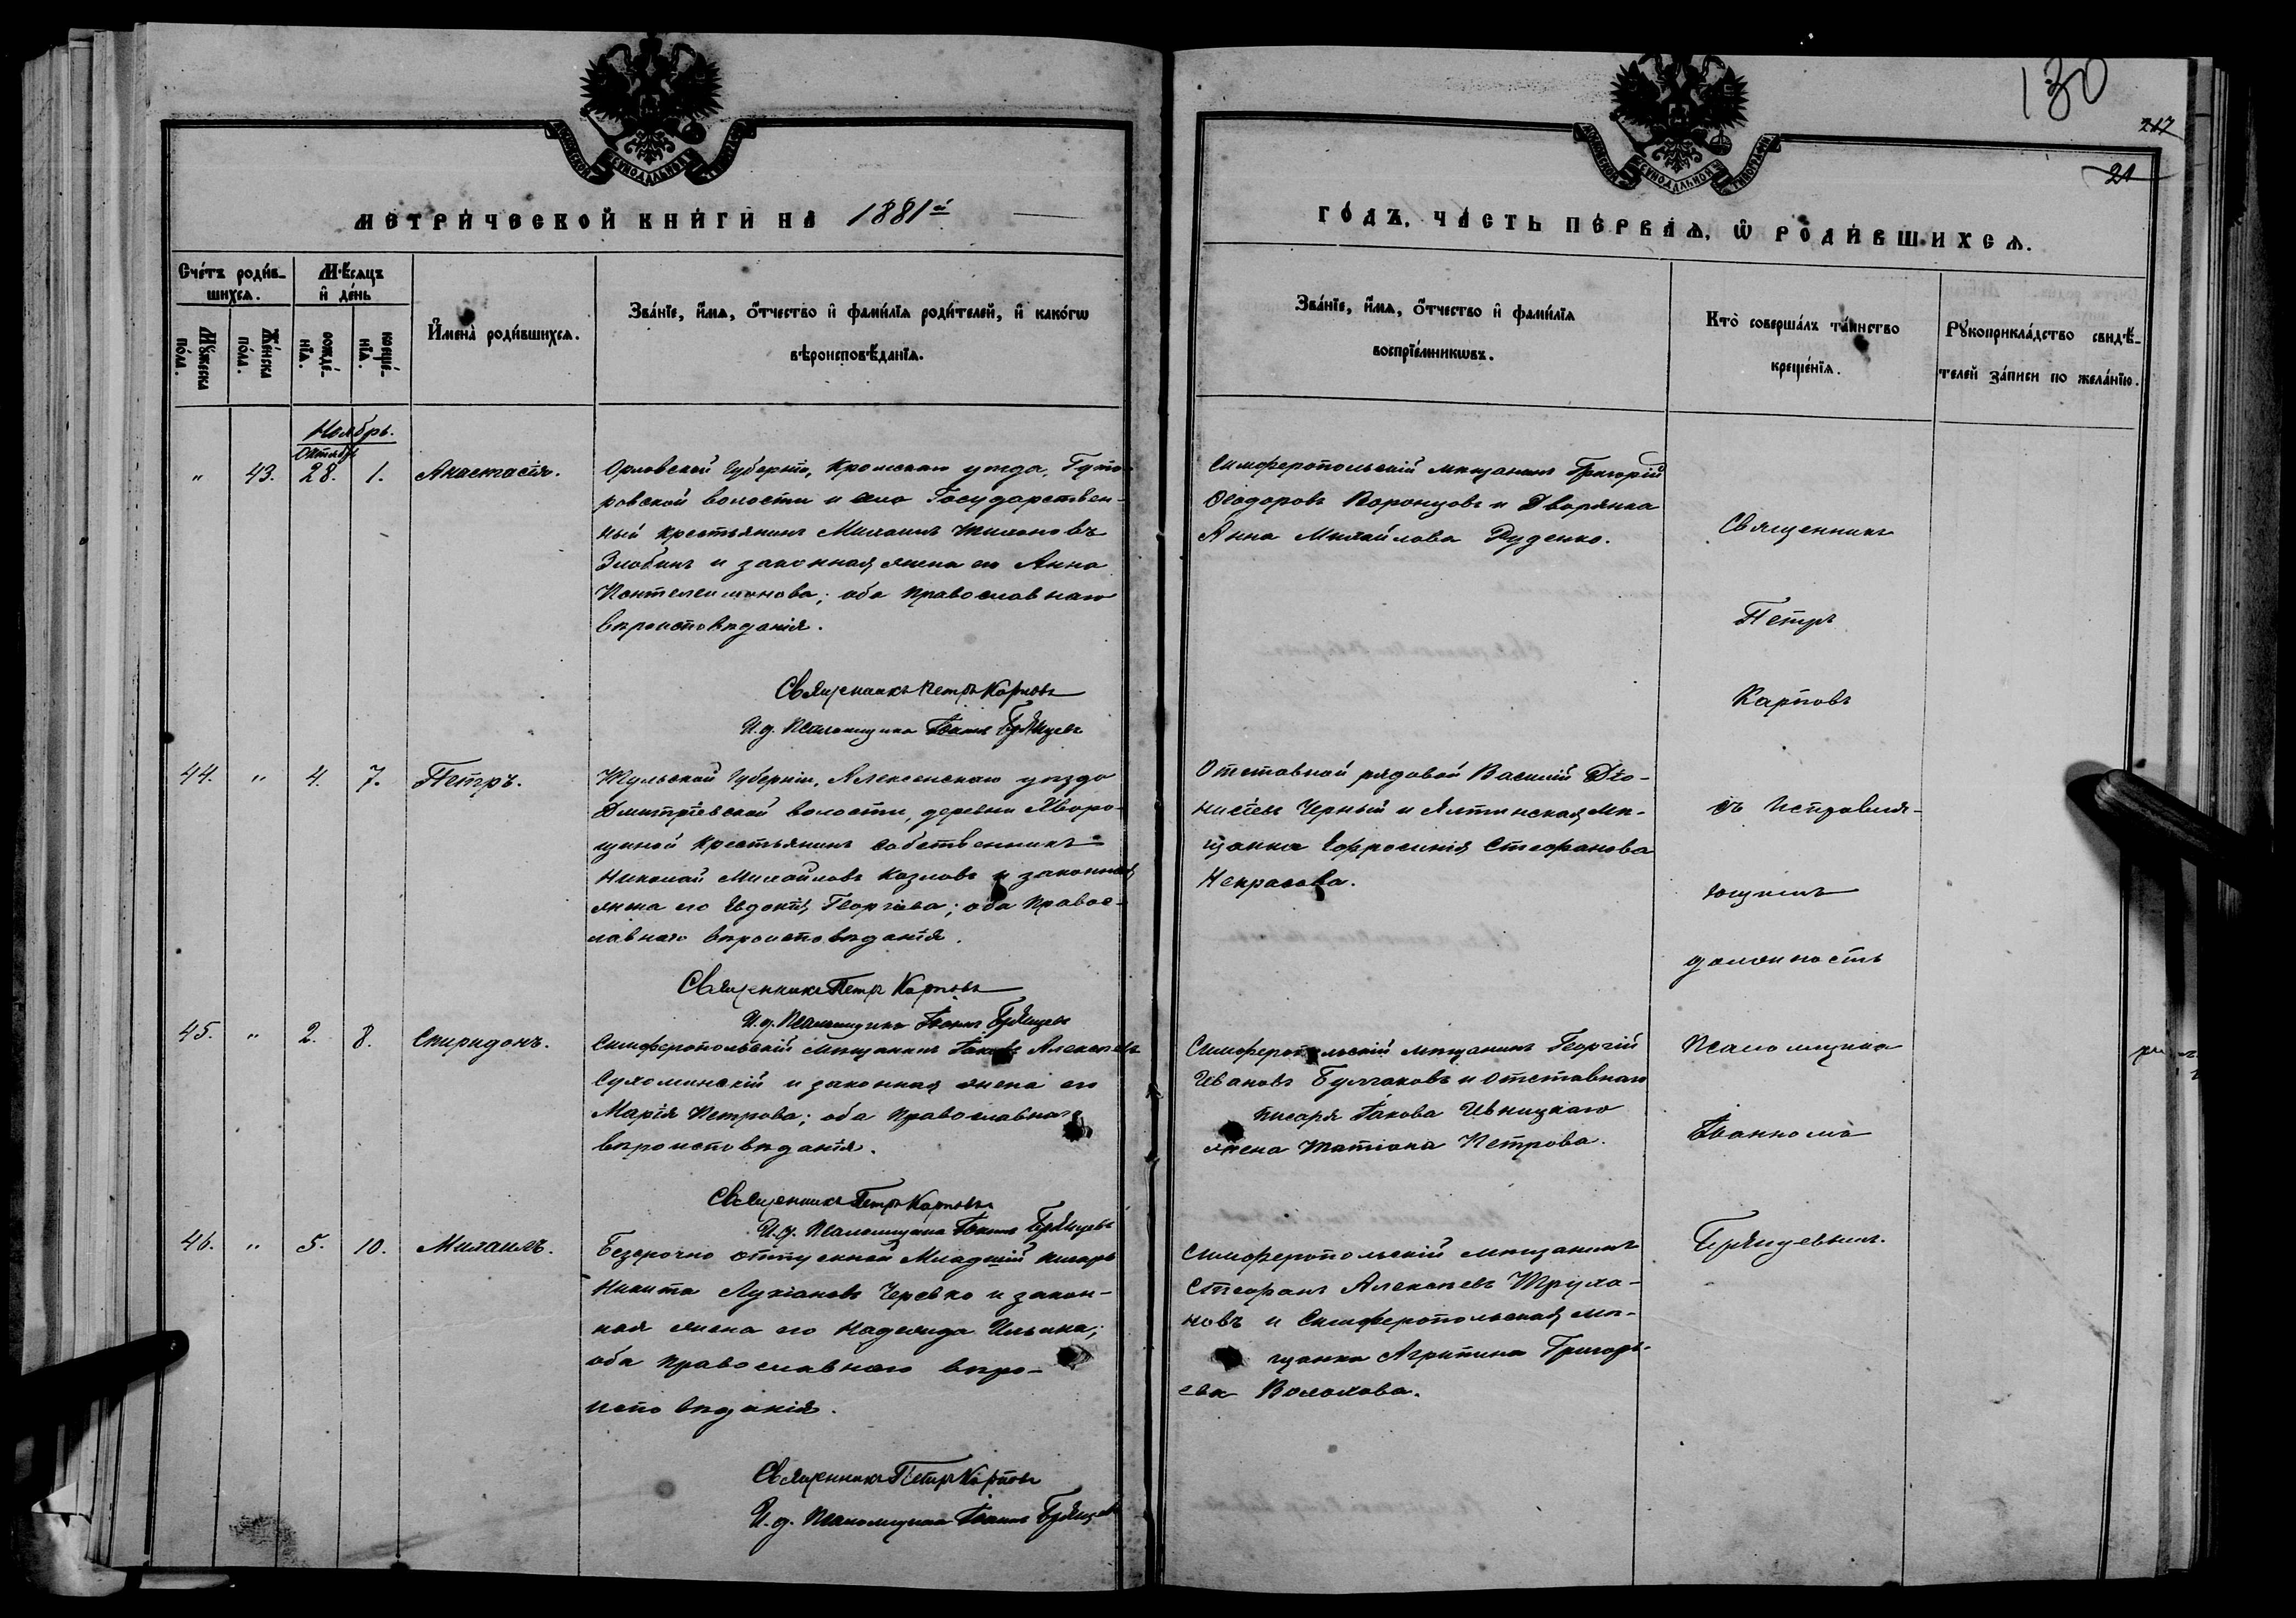 130
217
21
МОСКОВСКОЙ СѴНОДАЛЬНОЙ ТИПОГРАФІИ
МОСКОВСКОЙ СѴНОДАЛЬНОЙ ТИПОГРАФІИ
МЕТРИ́ЧЕСКОЙ КНИ́ГИ НА 1881й
ГО́ДЪ, ЧА́СТЬ ПЕ́РВАѦ, Ѡ РОДИ́ВШИХСѦ.
Сче́тъ роди́в-
шихсѧ.
Мѣ́сѧцъ
и҆ де́нь
Мꙋ́жеска
по́ла.
Же́нска
по́ла.
рожде́-
нїѧ.
креще́-
нїѧ.
И҆мена̀ роди́вшихсѧ.
Зва́нїе, и҆́мѧ, о҆́тчество и҆ фами́лїѧ роди́телей, и҆ како́гѡ
вѣроисповѣ́данїѧ.
Зва́нїе, и҆́мѧ, о҆́тчество и҆ фами́лїѧ
воспрїе́мникѡвъ.
Кто̀ соверша́лъ та́инство
креще́нїѧ.
Рꙋкоприкла́дство свидѣ́-
телей за́писи по жела́нїю.
Ноябрь.
Октябр
" 43. 28. 1. Анастасія.
Орловской Губерніи, Кромскаго уѣзда, Гуто-
ровской волости и села Государствен-
ный крестьянинъ Михаилъ Тихоновъ
Злобинъ и законная жена его Анна
Пантелеимонова; оба православнаго
вѣроисповѣданія.
Священникъ Петръ Карповъ
И.д. Псаломщика Іоаннъ Брянцевъ
Симферопольскій мѣщанинъ Григорій
Ѳеодоровъ Воронцовъ и Дворянка
Анна Михайлова Руденко.
Священникъ
Петръ
Карповъ
44. " 4. 7. Петръ.
Тульской Губерніи, Алексенскаго уѣзда
Дмитріевской волости, деревни
крестьянинъ собственникъ
Николай Михайловъ Козловъ и законная
жена его Евдокія Георгіева; оба Правос-
лавнаго вѣроисповѣданія.
Священникъ Петръ Карповъ
И.д. Псаломщика Іоаннъ Брянцевъ
Отставной рядовой Василій Діо-
нисіевъ Черный и Ялтинская мѣ-
щанка Евфросинія Стефанова
Некрасова.
съ исправля-
ющимъ
должность
45. " 2. 8. Спиридонъ.
Симферопольскій мѣщанинъ Іаковъ Алексѣевъ
Сухоминскій и законная жена его
Марія Петрова; оба православнаго
вѣроисповѣданія.
Священникъ Петръ Карповъ
И.д. Псаломщика Іоаннъ Брянцевъ
Симферопольскій мѣщанинъ Георгій
Ивановъ Булгаковъ и отставнаго
писаря Іакова Ивницкаго
жена Татіана Петрова.
Псаломщика
Іоанномъ
46. " 5. 10. Михаилъ.
Безсрочно отпускной Младшій писарь
Никита Лукіановъ Черевко и закон-
ная жена его Надежда Ильина;
оба православнаго вѣро-
исповѣданія.
Священникъ Петръ Карповъ
И.д. Псаломщика Іоаннъ Брянцевъ
Симферопольскій мѣщанинъ
Стефанъ Алексѣевъ Труха-
новъ и Симферопольская мѣ-
щанка Агрипина Григорь-
ева Волохова.
Брянцевымъ.